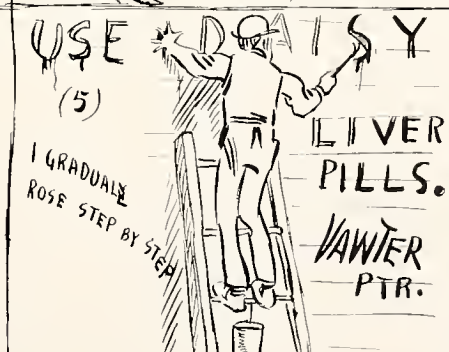 USE DAISY
(5)
LIVER
PILLS.
I GRADUALY
ROSE STEP BY STEP
VAWTER
PTR.